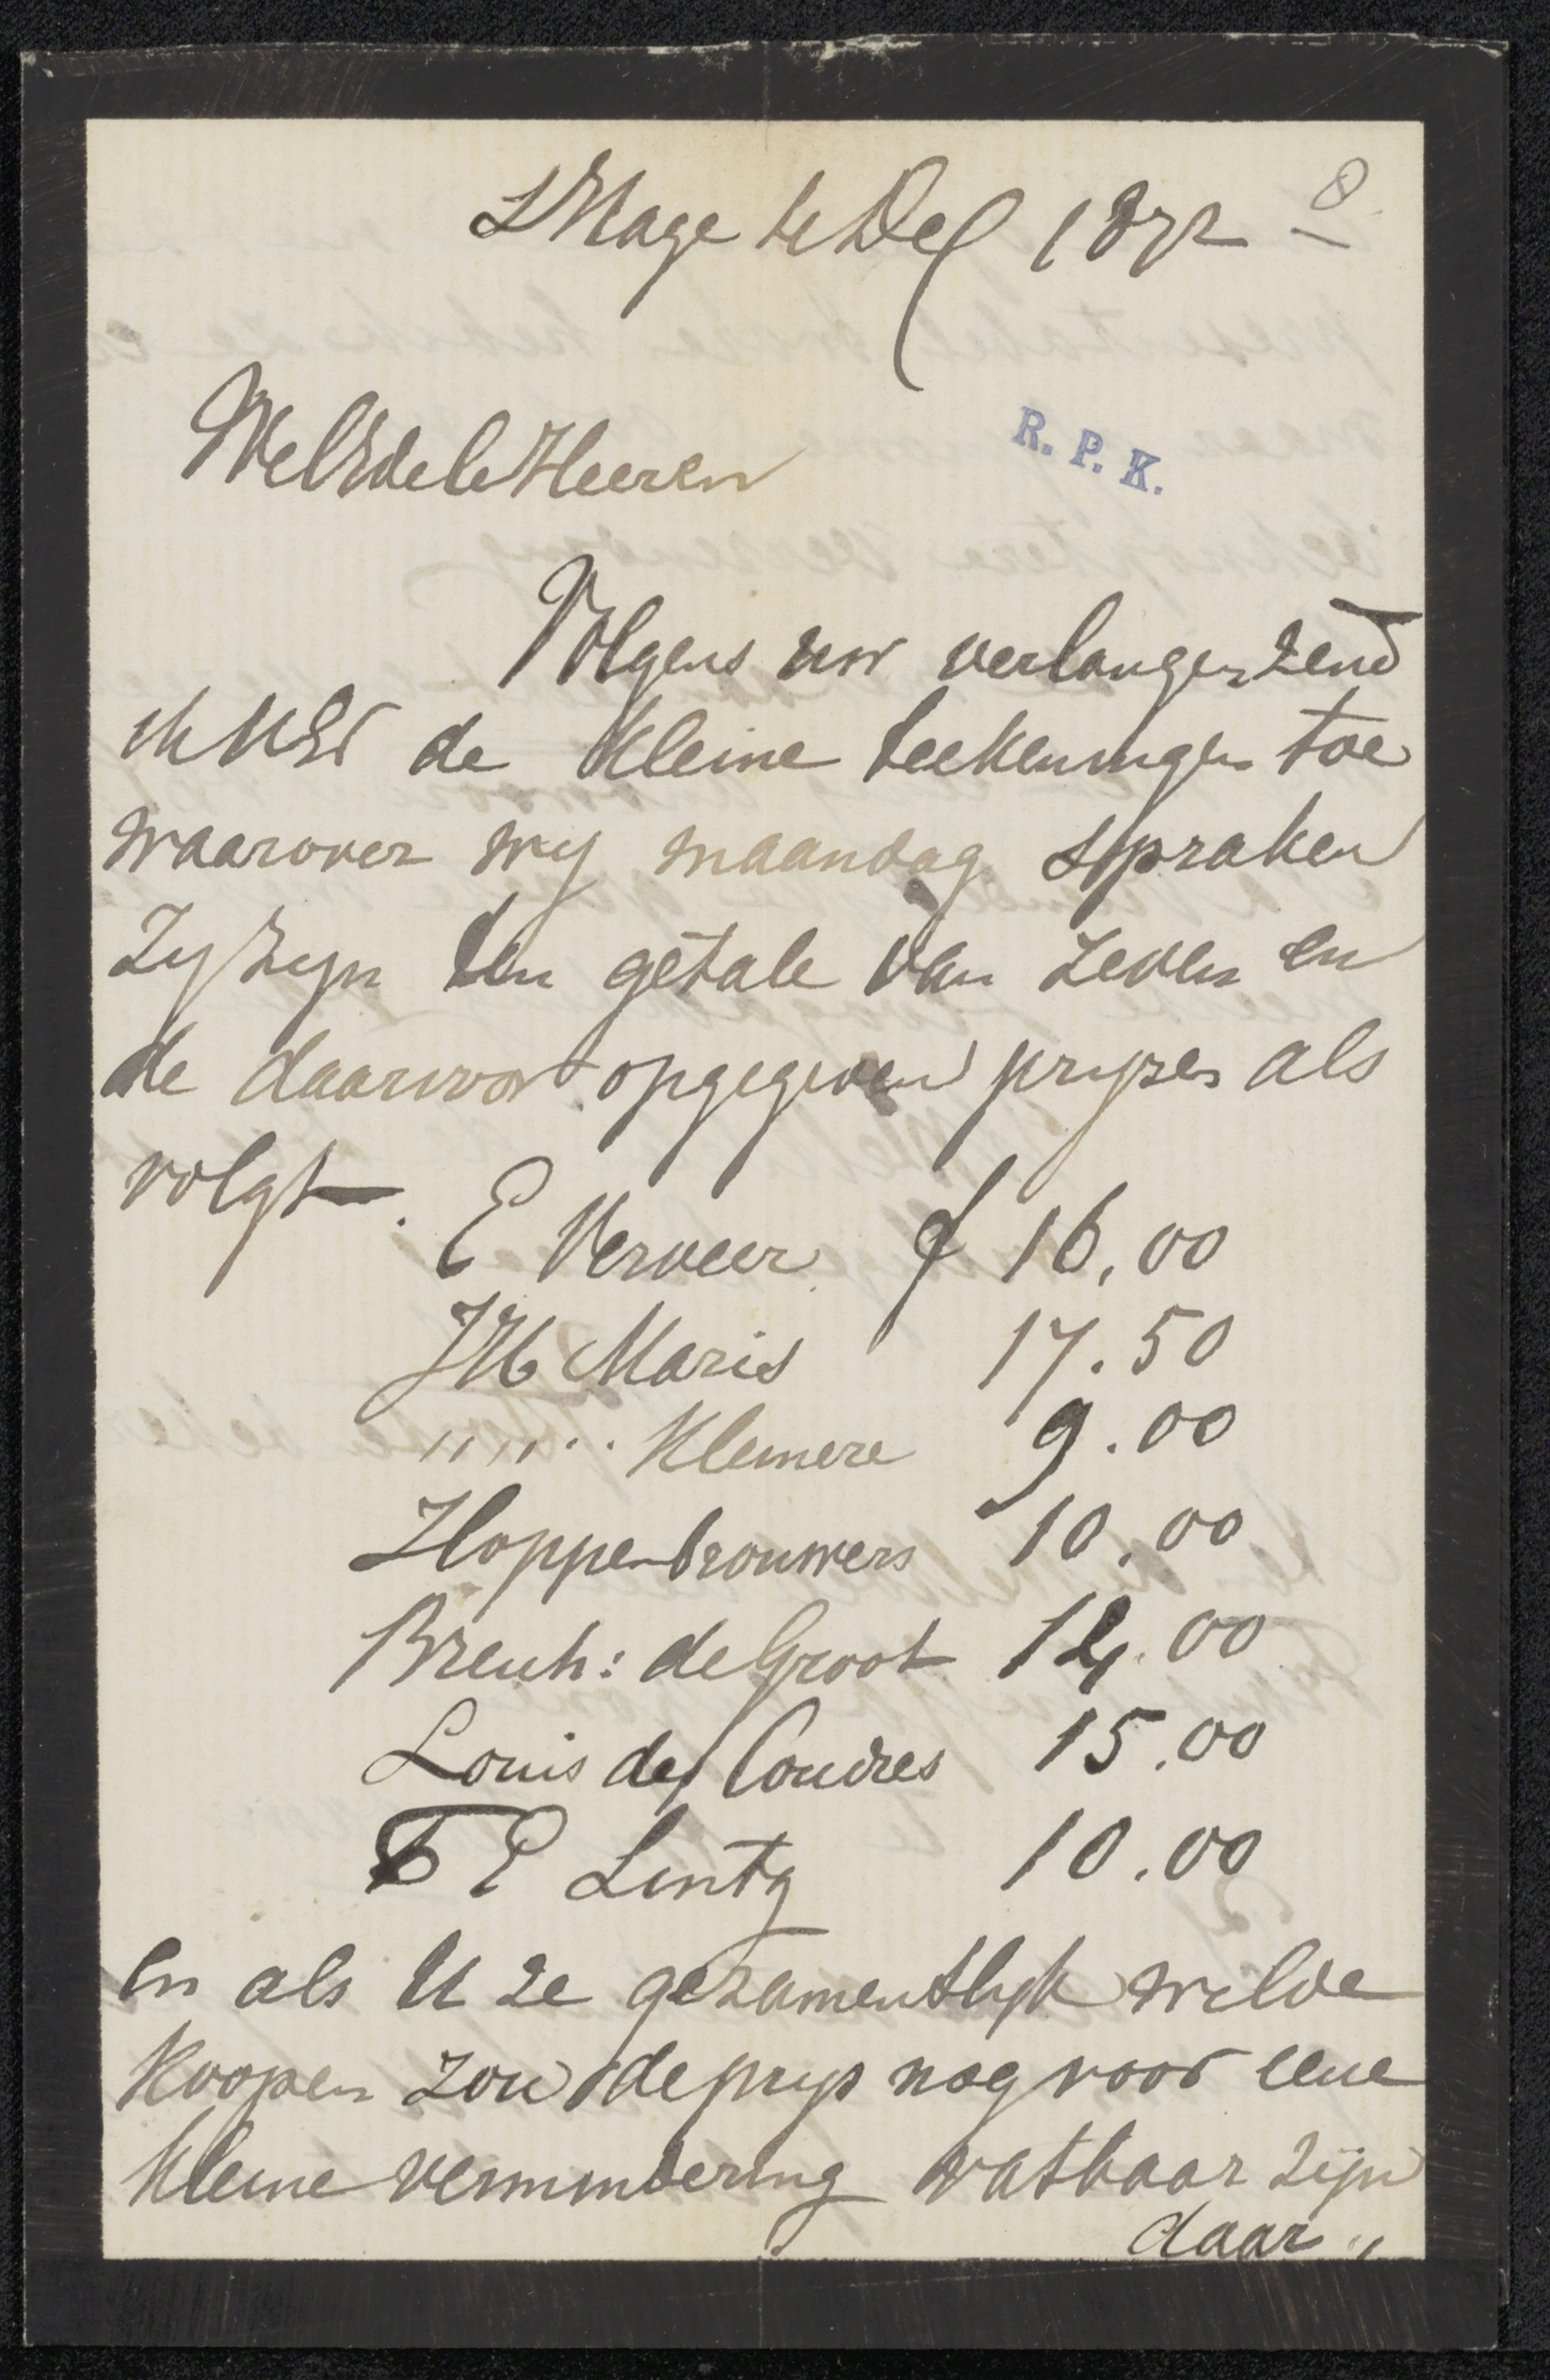 s'Hage 4 Dec 1872
8
WelEdele Heeren
R. P. K.
Volgens uw verlangen zend
ik UEd de kleine teekeningen toe
waarover wy maandag spraken
Zy zyn ten getale van zeven en
de daarvoor opgegeven pryzen als
volgt.
E Verveer f 16,00
JH Maris 17.50
" " " . . Kleinere 9.00
Hoppenbrouwers 10.00
Breuh: de Groot 14.00
Louis des Coudres 15.00
F E Lintz 10.00
en als U ze gezamentlyk wilde
koopen zou de prys nog voor eene
kleine vermindering vatbaar zijn
daar "